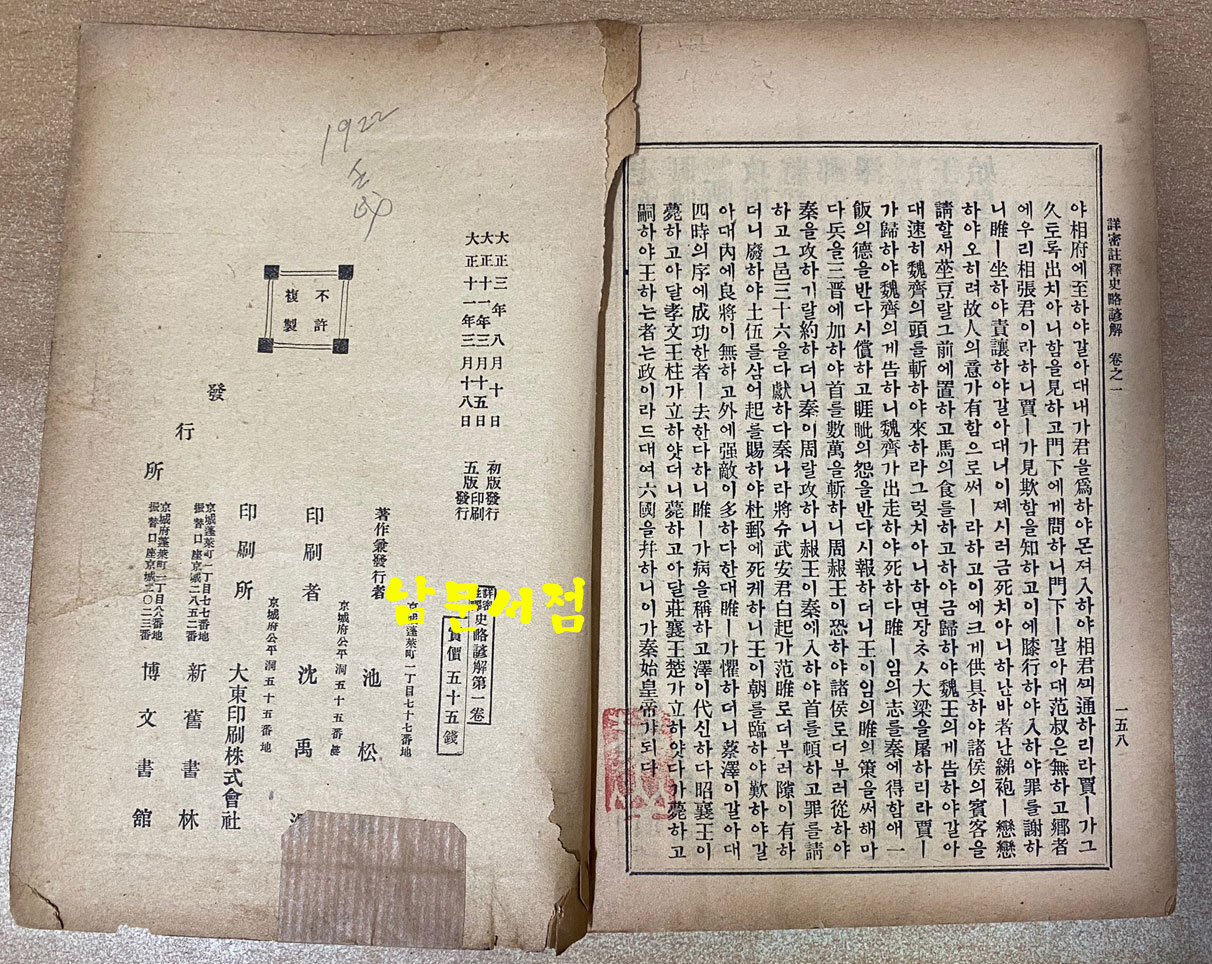 詳密註釋史略諺解 卷之一 一五八
야相府에至하야갈아대내가君을爲하야몬져入하야相君끠通하리라賈ㅣ가그
久토록出치아니함을見하고門下에게問하니門下ㅣ갈아대范叔은無하고鄕者
에우리相張君이라하니賈ㅣ가見欺함을知하고이에膝行하야入하야罪를謝하
니睢ㅣ坐하야責讓하야갈아대너이졔시러금死치아니하난바者난綈袍ㅣ戀戀
하야오히려故人의意가有함으로써ㅣ라하고이에크게供具하야諸侯의賓客을
請할새莝豆랄그前에置하고馬의食를하고하야금歸하야魏王의게告하야갈아
대速히魏齊의頭를斬하야來하라그럿치아니하면장ᄎᆞᆺ大梁을屠하리라賈ㅣ
가歸하야魏齊의게告하니魏齊가出走하야死하다睢ㅣ임의志를秦에得함애一
飯의德을반다시償하고睚眦의怨을반다시報하더니王이임의睢의策을써해마
다兵을三晋에加하야首를數萬을斬하니周赧王이恐하야諸侯로더부러從하야
秦을攻하기랄約하더니秦이周랄攻하니赧王이秦에入하야首를頓하고罪를請
하고그邑三十六을다獻하다秦나라將슈武安君白起가范睢로더부러隙이有하
더니廢하야士伍를삼어起를賜하야杜郵에死케하니王이朝를臨하야歎하야갈
아대內에良將이無하고外에强敵이多하다한대睢ㅣ가懼하더니蔡澤이갈아대
四時의序에成功한者ㅣ去한다하니睢ㅣ가病을稱하고澤이代신하다昭襄王이
薨하고아달孝文王柱가立하얏더니薨하고아달莊襄王楚가立하얏다가薨하고
嗣하야王하는者는政이라드대여六國을幷하니이가秦始皇帝가되다
1922
大正三年八月十日 初版發行
大正十一年三月十五日 五版印刷
大正十一年三月十八日 五版發行
不許
複製
史略諺解第一卷
價 五十五錢
蓬萊町一丁目七十七番地
著作兼發行者 池松
京城府公平洞五十五番
印刷者 沈禹
京城府公平洞五十五番地
印刷所 大東印刷株式會社
發行所
京城蓬萊町一丁目七七番地
振替口座京城二八五二番
新舊書林
京城蓬萊町二丁目八八番地
振替口座京城二〇二三番
博文書館
남문서점